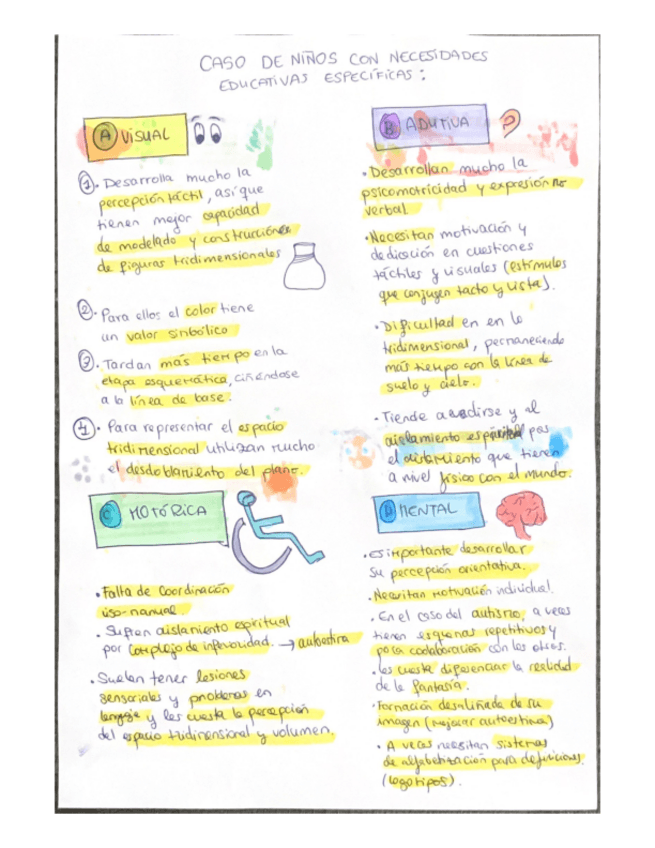 CASO DE NIÑOS CON NECESIDADES
EDUCATIVAS ESPECÍFICAS:
A VISUAL
1. Desarrolla mucho la
percepción táctil, así que
tienen mejor capacidad
de modelado y construcciónes
de figuras tridimensionales
2. Para ellos el color tiene
un valor simbólico
3. Tardan más tiempo en la
etapa esquemática, ciñéndose
a la línea de base.
4. Para representar el espacio
tridimensional utilizan mucho
el desdoblamiento del plano.
B ADUTIVA
• Desarrollan mucho la
psicomotricidad y expresión no
verbal
• Necesitan motivación y
dedicación en cuestiones
táctiles y visuales (estímulos
que conjugen tacto y vista).
• Dificultad en en lo
tridimensional, permaneciendo
más tiempo con la línea de
suelo y cielo.
• Tiende a y al
aislamiento espiritual por
el que tienen
a nivel físico con el mundo.
C MOTÓRICA
• Falta de Coordinación
viso-manual.
• Sufren aislamiento espiritual
por complejo de inferioridad. → autoestima
• Suelen tener lesiones
sensoriales y problemas en
lenguaje y les cuesta la percepción
del espacio tridimensional y volumen.
D MENTAL
• es importante desarrollar
su percepción orientativa.
• Necesitan motivación individual.
• En el caso del autismo, a veces
tienen esquemas repetitivos y
poca codaboración con los otros.
• les cuesta diferenciar la realidad
de la fantasía.
• Formación desaliñada de su
imagen (mejorar autoestima)
• A veces necesitan sistemas
de alfabetización para deficientes.
(logotipos).